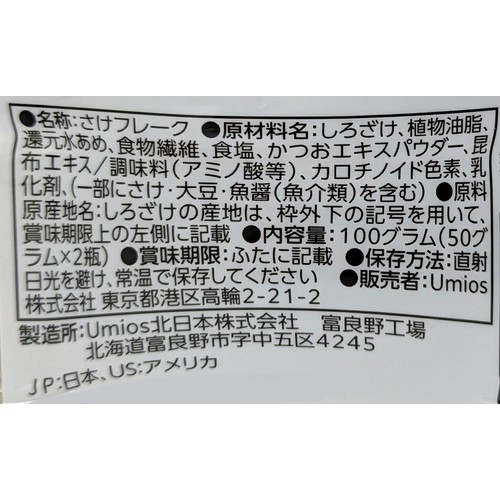 ●名称:さけフレーク ●原材料名:しろざけ、植物油脂、
還元水あめ、食物繊維、食塩、かつおエキスパウダー、昆
布エキス/調味料(アミノ酸等)、カロチノイド色素、乳
化剤、(一部にさけ・大豆・魚醤(魚介類)を含む) ●原料
原産地名:しろざけの産地は、枠外下の記号を用いて、
賞味期限上の左側に記載 ●内容量:100グラム(50グ
ラム×2瓶) ●賞味期限:ふたに記載 ●保存方法:直射
日光を避け、常温で保存してください ●販売者:Umios
株式会社 東京都港区高輪2-21-2
製造所:Umios北日本株式会社 富良野工場
北海道富良野市字中五区4245
JP:日本、US:アメリカ